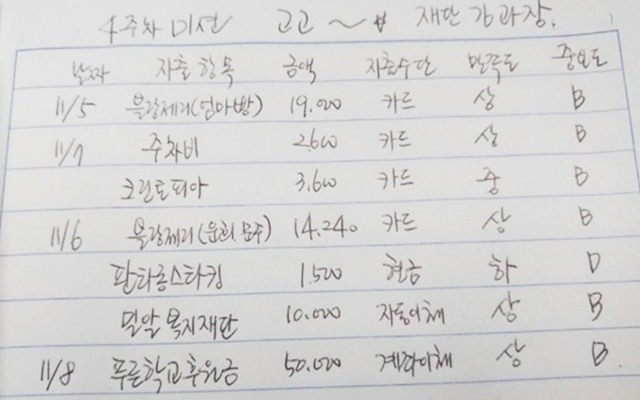 4주차 미션 고고~ 재단 김과장.
날짜 지출 항목 금액 지출수단 만족도 중요도
11/5 물광제리(엄마방) 19.000 카드 상 B
11/7 주차비 2.600 카드 상 B
크린토피아 3.600 카드 중 B
11/6 물광제리( ) 14.240 카드 상 B
판타롱스타킹 1.500 현금 하 D
밀알복지재단 10.000 자동이체 상 B
11/8 푸른학교후원금 50.000 계좌이체 상 B